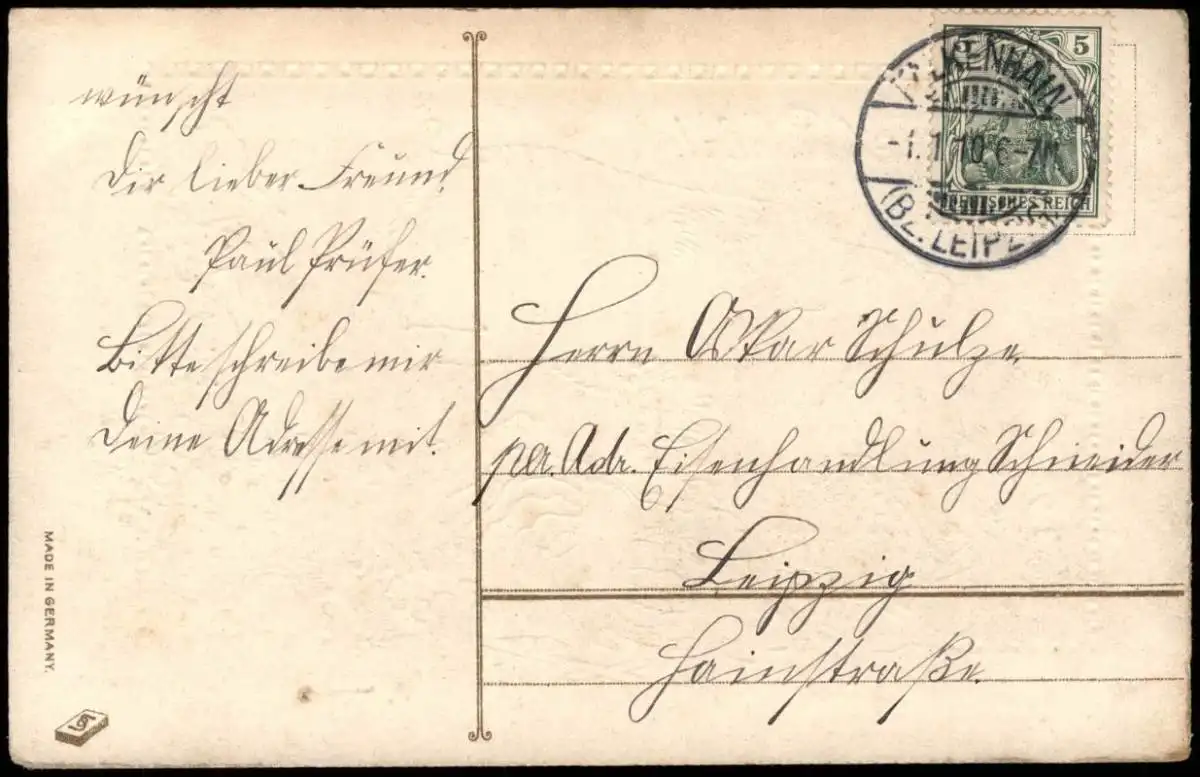 wünscht
Dir lieber Freund,
Paul Prüfer.
Bitte schreibe mir
Deine Adresse mit.
MADE IN GERMANY.
5
DEUTSCHES REICH
FALKENHAIN
1.1.10. 6-7N
(BZ. LEIPZIG)
Herrn Oskar Schulze
per. Adr. Eisenhandlung Schneider
Leipzig
Hainstraße.